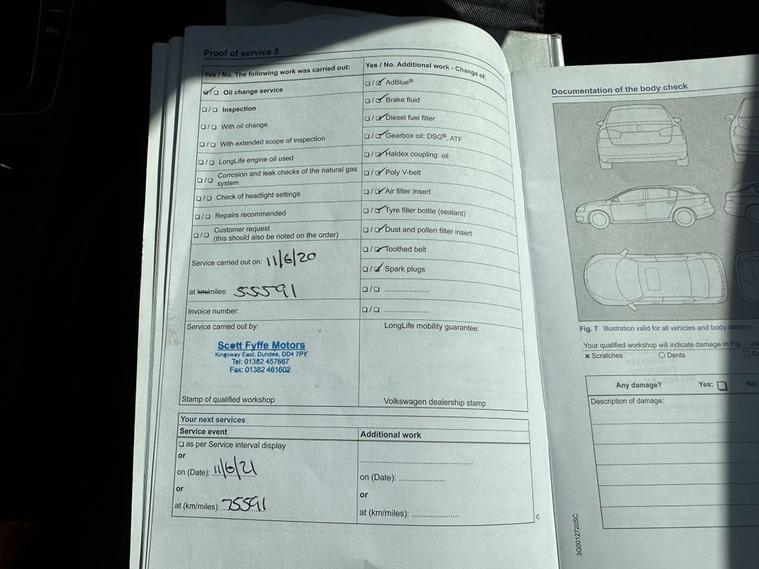 Proof of service 5
Yes / No. The following work was carried out:
☑/☐ Oil change service
☐/☐ Inspection
☐/☐ With oil change
☐/☐ With extended scope of inspection
☐/☐ LongLife engine oil used
☐/☐ Corrosion and leak checks of the natural gas
system
☐/☐ Check of headlight settings
☐/☐ Repairs recommended
☐/☐ Customer request
(this should also be noted on the order)
Service carried out on: 11/6/20
at km/miles: 55591
Invoice number:
Service carried out by:
Scott Fyffe Motors
Kingsway East, Dundee, DD4 7PY
Tel: 01382 457667
Fax: 01382 461602
Stamp of qualified workshop
Yes / No. Additional work - Change of:
☐/☑ AdBlue®
☐/☑ Brake fluid
☐/☑ Diesel fuel filter
☐/☑ Gearbox oil: DSG®, ATF
☐/☑ Haldex coupling: oil
☐/☑ Poly V-belt
☐/☑ Air filter insert
☐/☑ Tyre filler bottle (sealant)
☐/☑ Dust and pollen filter insert
☐/☑ Toothed belt
☐/☑ Spark plugs
☐/☐ ......................
☐/☐ ......................
LongLife mobility guarantee:
Volkswagen dealership stamp
Your next services
Service event
☐ as per Service interval display
or
on (Date): 11/6/21
or
at (km/miles): 75591
Additional work
......................
on (Date): ......................
or
at (km/miles): ......................
Documentation of the body check
Fig. 7 Illustration valid for all vehicles and body designs.
Your qualified workshop will indicate damage in Fig. 7
x Scratches ○ Dents
Any damage? Yes: ☐ No:
Description of damage:
3G0012720SC